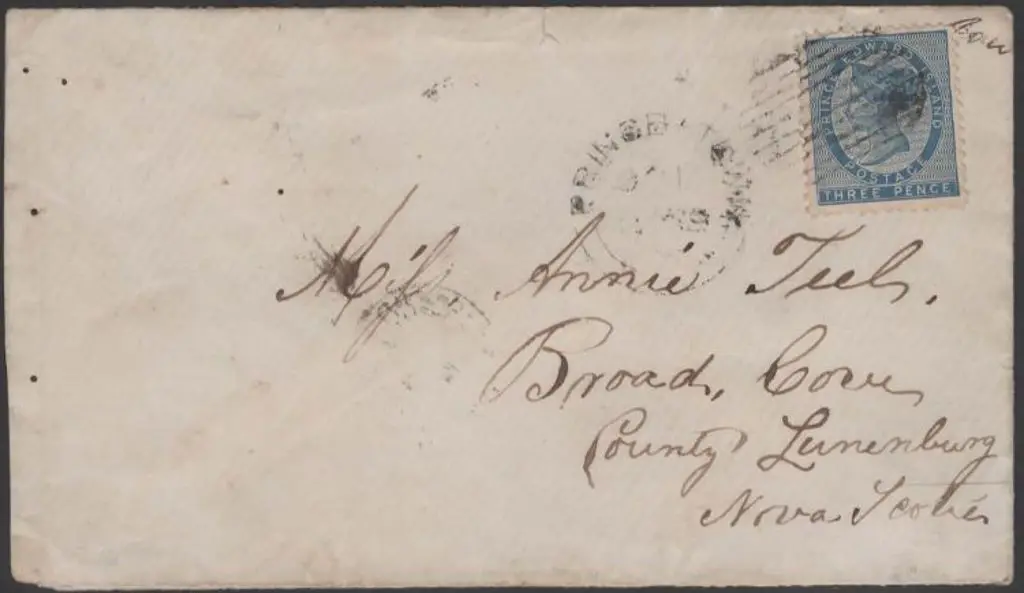 PRINCE EDWARD ISLAND
POSTAGE
THREE PENCE
PRINCE
Miss Annie Teel,
Broad, Cove
County Lunenburg
Nova Scotia